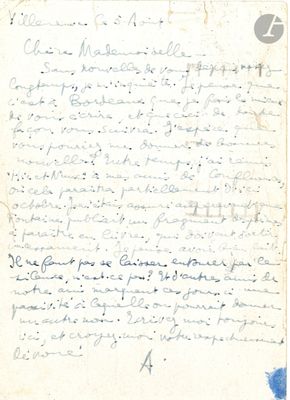 Villeneuve le 5 Août
Chère Mademoiselle
Sans nouvelles de vous depuis assez
longtemps, je m'inquiète. Je pense que
c'est à Bordeaux que je fais le mieux
de vous écrire, et que ceci de toute
façon vous suivra. J'espère que
vous pourrez me donner de bonnes
nouvelles? Entre temps, j'ai
et à mes amis de Confluences,
où cela paraîtra partiellement d'ici
octobre. que
Fontaine publiait un fragment
à paraître en livre, qui
Je pense avoir bien fait.
Il ne faut pas se laisser entourer par le
silence, n'est-ce pas? Et d'autres amis de
notre ami marquent ces jours-ci une
passivité à laquelle on pourrait donner
un autre nom. Ecrivez moi toujours
ici, et croyez moi votre respectueusement
dévoué
A.